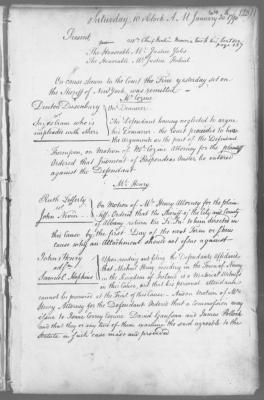 Saturday, 10 oClock A. M January 30th 1790
Present
page 137
The Honorable Mr Justice Yates
The Honorable Mr Justice Hobart
On cause shewn to the Court the Fine yesterday set on
the Sheriff of New York, was remitted
Mr Cozine
On Demurrer
The Defendant having neglected to argue
who is
impleaded with others
his Demurrer the Court proceeds to hear
the Arguments on the part of the
Thereupon, on Motion of Mr Cozine Attorney for the plaintiff
Ordered that Judgment of Respondeas Ouster be entered
against the Defendant
Mr Henry
Ruth Lefferty
vs
John Niven
On Motion of Mr Henry Attorney for the plain-
tiff. Ordered that the Sheriff of the City and County
of Albany return the Fi: Fa: When directed in
this Cause by the first Day of the next Term or shew
cause why an Attachment should not issue against
John Henry
ads
Samuel Hopkins
Upon reading and filing the Defendants Affidavit
that Michael Henry residing in the Town of
in the Kingdom of Ireland is a Material Witness
in this Cause, and that his personal attendance
cannot be procured at the Trial of this Cause. And on Motion of Mr
Henry Attorney for the Defendant Ordered that a Commission may
issue to James
and James Pollock
and that they or any two of them
and agreeable to the
Statute in such case made and provided